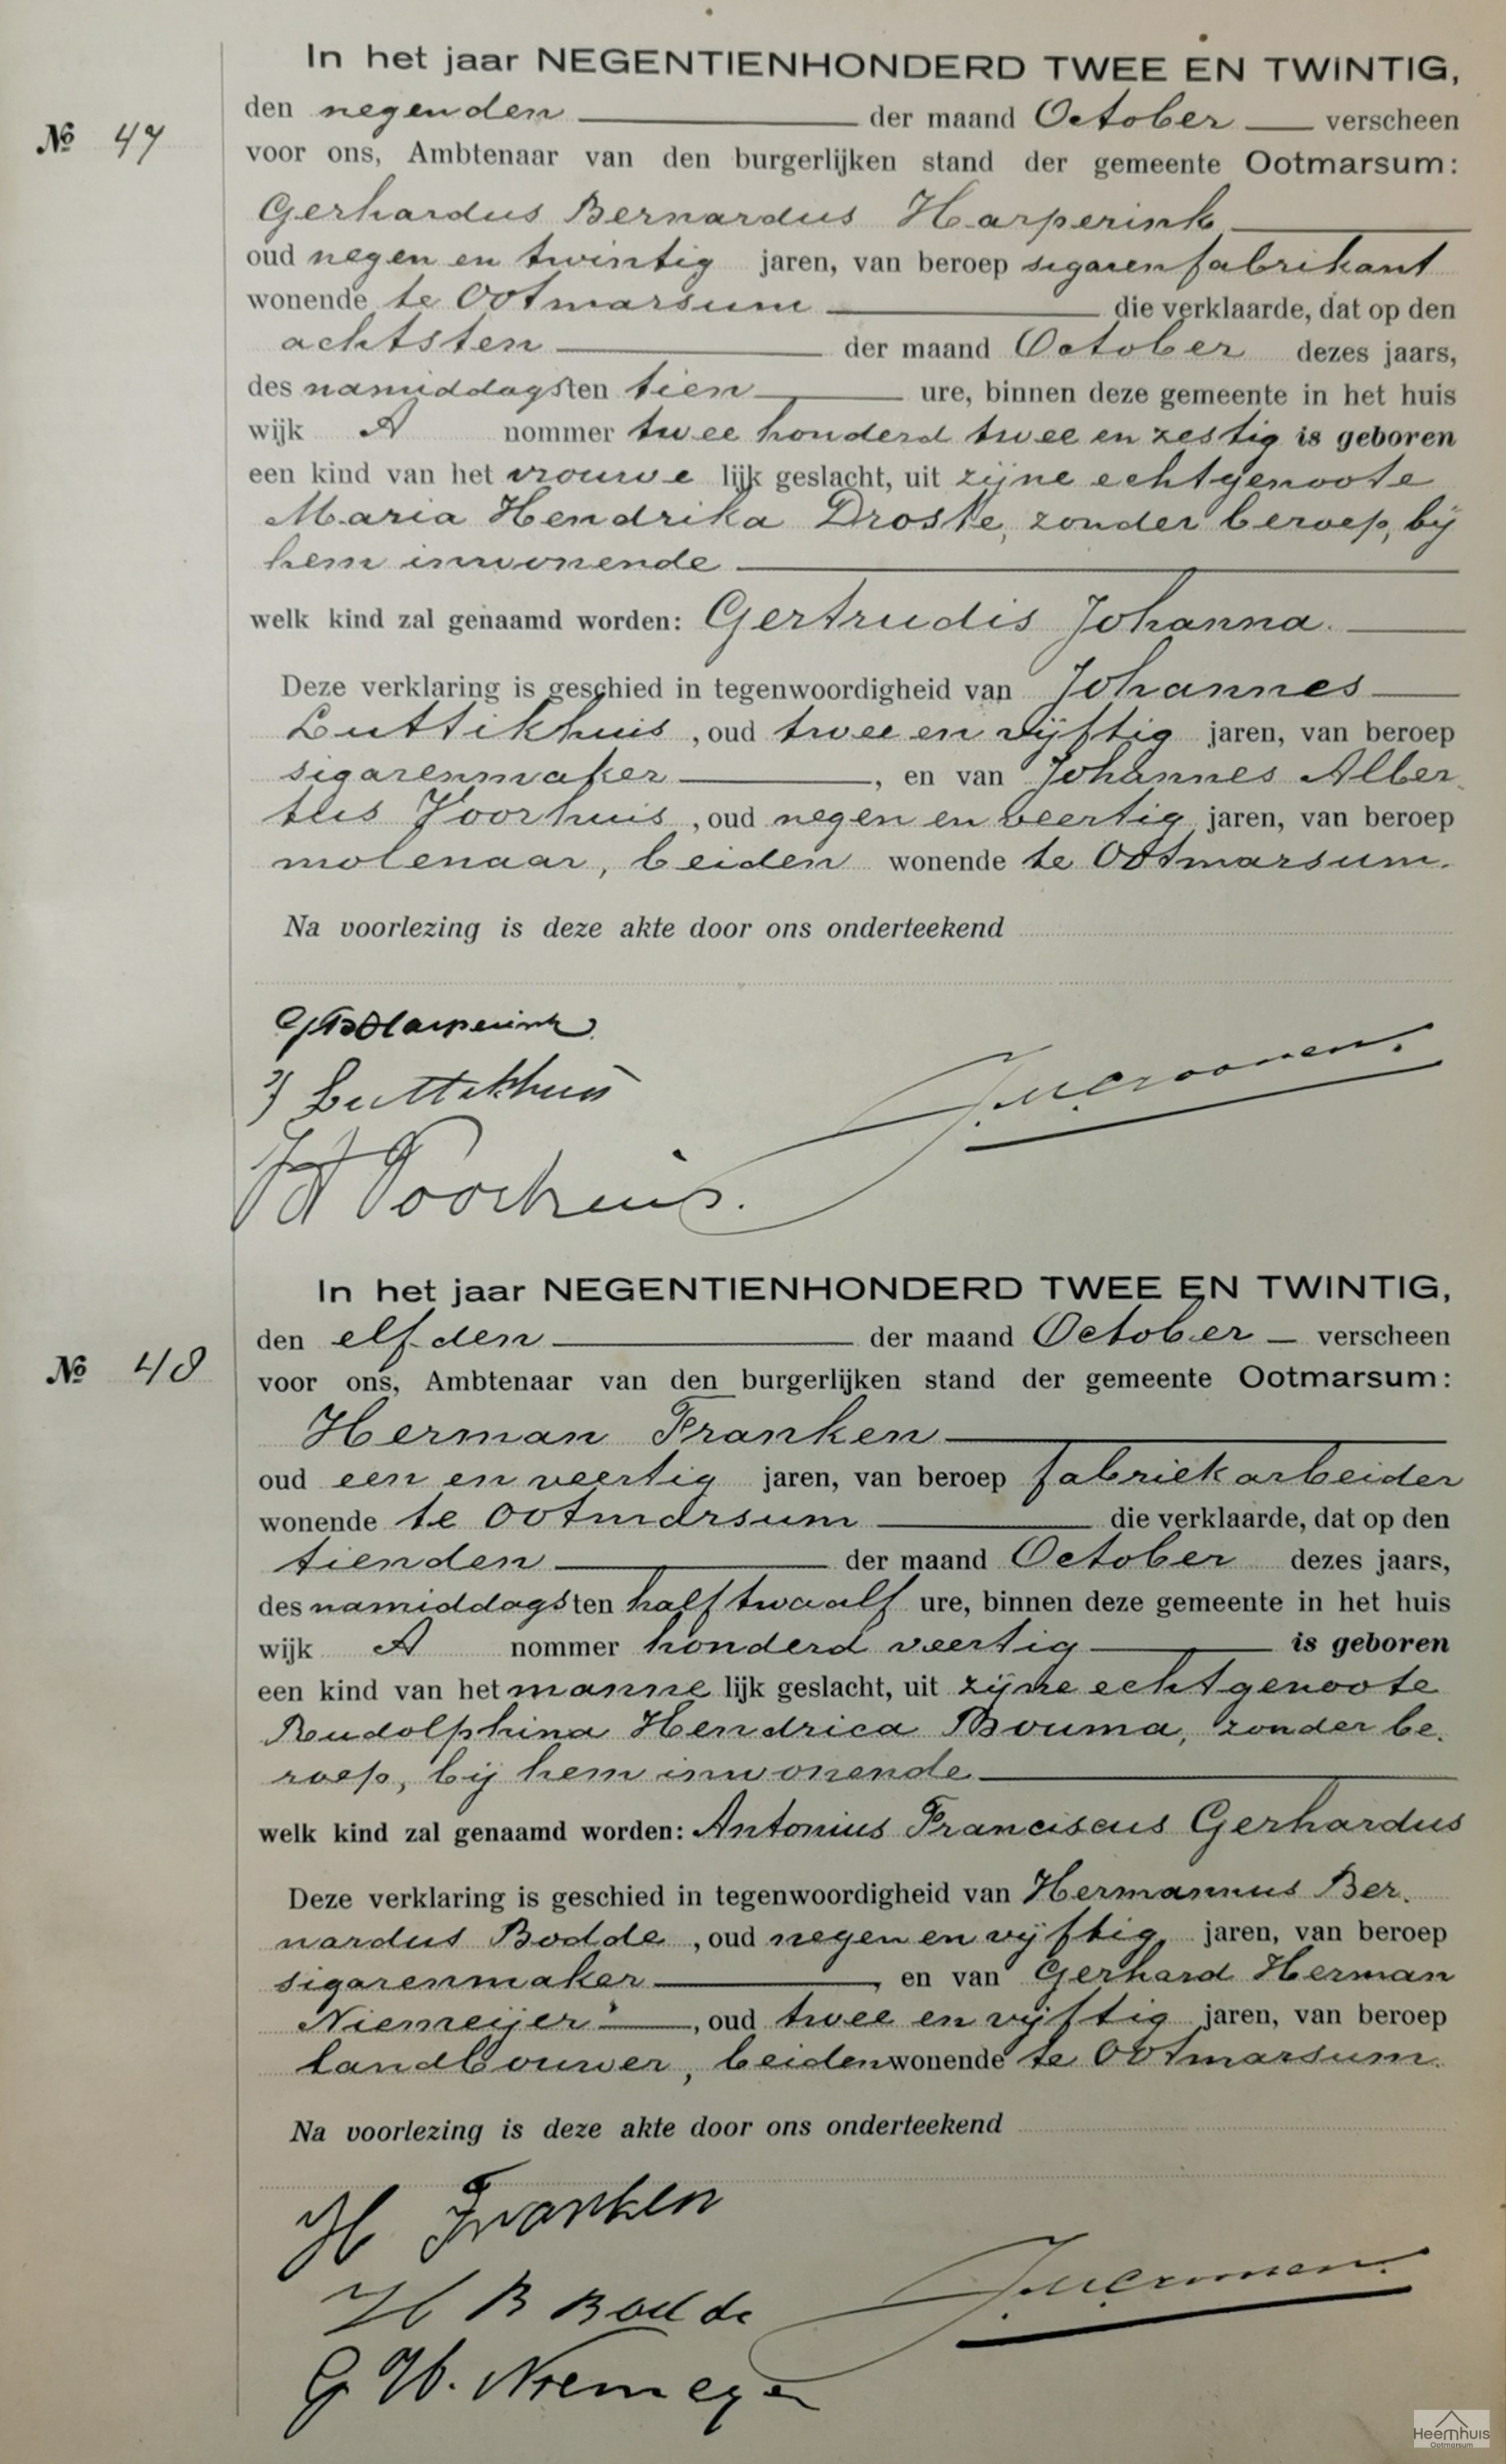 In het jaar NEGENTIENHONDERD TWEE EN TWINTIG,
den negenden der maand October verscheen
№ 47
voor ons, Ambtenaar van den burgerlijken stand der gemeente Ootmarsum:
Gerhardus Bernardus Harperink
oud negen en twintig jaren, van beroep sigarenfabrikant
wonende te Ootmarsum die verklaarde, dat op den
achtsten der maand October dezes jaars,
des namiddagsten tien ure, binnen deze gemeente in het huis
wijk A nommer twee honderd twee en zestig is geboren
een kind van het vrouwe lijk geslacht, uit zijne echtgenoote
Maria Hendrika Droste, zonder beroep, bij
hem inwonende
welk kind zal genaamd worden: Gertrudis Johanna.
Deze verklaring is geschied in tegenwoordigheid van Johannes
Luttikhuis, oud twee en vijftig jaren, van beroep
sigarenmaker, en van Johannes Alber
tus Voorhuis, oud negen en veertig jaren, van beroep
molenaar, beiden wonende te Ootmarsum.
Na voorlezing is deze akte door ons onderteekend
GBHarperink
J Luttikhuis
JA Voorhuis.
In het jaar NEGENTIENHONDERD TWEE EN TWINTIG,
den elfden der maand October verscheen
№ 48
voor ons, Ambtenaar van den burgerlijken stand der gemeente Ootmarsum:
Herman Franken
oud een en veertig jaren, van beroep fabriekarbeider
wonende te Ootmarsum die verklaarde, dat op den
tienden der maand October dezes jaars,
des namiddagsten half twaalf ure, binnen deze gemeente in het huis
wijk A nommer honderd veertig is geboren
een kind van het manne lijk geslacht, uit zijne echtgenoote
Rudolphina Hendrica Bouma, zonder be.
roep, bij hem inwonende
welk kind zal genaamd worden: Antonius Franciscus Gerhardus
Deze verklaring is geschied in tegenwoordigheid van Hermannus Ber.
nardus Bodde, oud negen en vijftig, jaren, van beroep
sigarenmaker, en van Gerhard Herman
Niemeijer, oud twee en vijftig jaren, van beroep
landbouwer, beiden wonende te Ootmarsum.
Na voorlezing is deze akte door ons onderteekend
H Franken
H B Bodde
G H. Niemeyer
Heemhuis
Ootmarsum